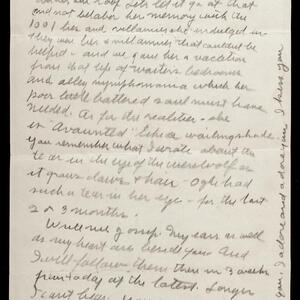 roof let's let it go at that
and not belabor her memory with the
1001 lies and villainies she indulged in -
they were her and villainies that couldn't be
helped - and we her a vacation
from that life of waiters bedrooms
and alley nymphomania which her
poor little battered soul must have
needed. As for the realities - she
is "avaunted" like a
you remember what I wrote about the
tear in the eye of the werewolf as
it grows claws & hair - Ogh! had
such a tear in her eye - for the last
2 or 3 months.
Write me gossip. My ears as well
as my heart are beside you and
I will follow them there in 3 weeks
from today at the latest. Longer
I can't
you, I adore and adore you, I kiss you